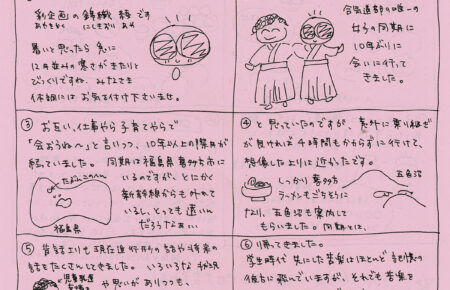 新企画の錦織 綾です
あやきかく にしきおり あや
暑いと思ったら急に
12月並みの寒さがきたりと
びっくりですね。みなさま
体調にはお気を付け下さいませ。
合気道部の唯一の
女子の同期に
10年ぶりに
会いに行って
きました。
③ お互い、仕事やら子育てやらで
「会おうね〜」と言いつつ、10年以上の膠月が
続いていました。同期は福島県喜多方市に
いるのですが、とにかく
新幹線からも外れて
いるし、とっても遠いん
だろうなぁ…
福島県
④ と思っていたのですが、意外に乗り継ぎ
が良ければ4時間もかからずに行けて、
想像したよりは近かったです。
しっかり喜多方
ラーメンもごちそうに
五色沼
なり、五色沼も案内して
もらいました。同期とは、
⑤ 昔話よりも現在進行形の話や将来の
話をたくさんしてきました。いろいろな
や思いがありつつも、
⑥ り帰ってきました。
学生時代 共にした苦楽はほとんど記憶の
彼方に飛んでいますが、それでも苦楽を